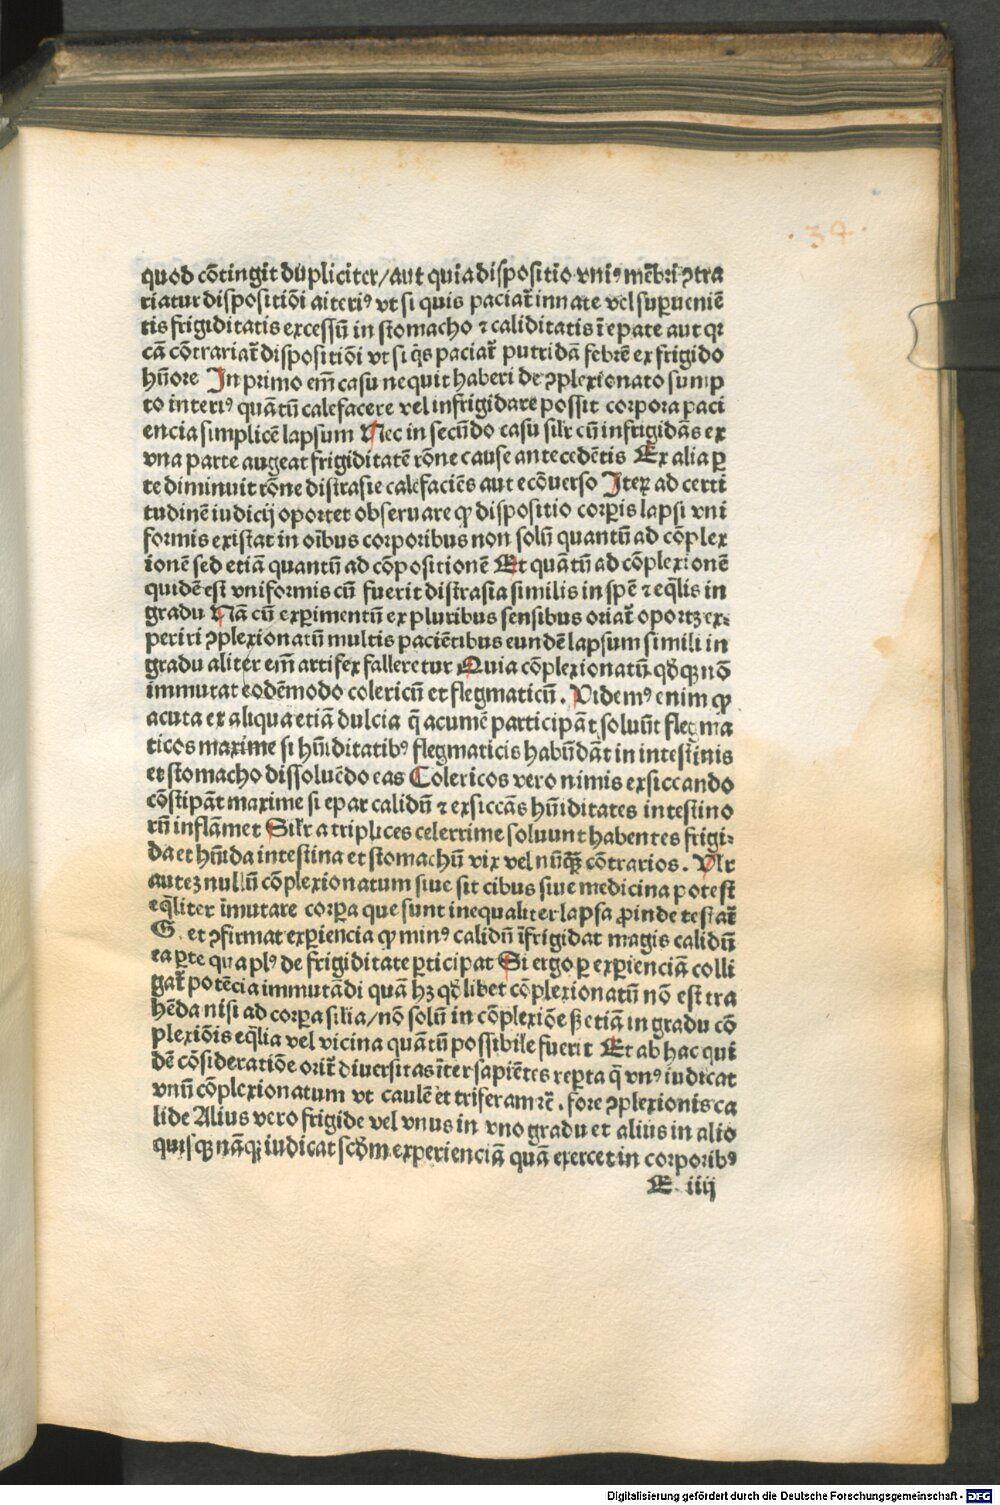 .34.
quod cõtingit dupliciter/aut quia dispositio vniꝰ mẽbri ꝯtra
riatur dispositiõi alteriꝰ vt si quis paciat᷑ innate vel suꝑuenię̃
tis frigiditatis excessũ in stomacho ⁊ caliditatis ĩ epate aut qꝛ
cã cõtrariat᷑ dispositiõi vt si q̇s paciat᷑ putridã febrẽ ex frigido
hũore In primo em̃ casu nequit haberi de ꝯplexionato sump
to interiꝰ quãtũ calefacere vel infrigidare possit corpora paci
encia simplicẽ lapsum Nec in secũdo casu silr cũ infrigidãs ex
vna parte augeat frigiditatẽ rõne cause antecedẽtis Ex alia ꝑ
te diminuit rõne distrasie calefaciẽs aut ecõuerso Iteꝝ ad certi
tudinẽ iudicij oportet obseruare ꝙ dispositio corꝑis lapsi vni
formis existat in oĩbus corporibus non solũ quantũ ad cõplex
ionẽ sed etiã quantũ ad cõpositionẽ Et quãtũ ad cõplexionẽ
quidẽ est vniformis cũ fuerit distrasia similis in spẽ ⁊ eq̃lis in
gradu Nã cũ exꝑimentũ ex pluribus sensibus oriat᷑ oportꝫ ex⸗
periri ꝯplexionatũ multis paciẽtibus eundẽ lapsum simili in
gradu aliter em̃ artifex falleretur Quia cõplexionatũ qd̕ꝙꝫ nõ
immutat eodẽmodo colericũ et flegmaticũ. Videmꝰ enim ꝙ
acuta ex aliqua etiã dulcia q̃ acumẽ participãt soluũt flegma
ticos maxime si hũiditatibꝰ flegmaticis habũdãt in intestinis
et stomacho dissoluẽdo eas Colericos vero nimis exsiccando
cõstipãt maxime si epar calidũ ⁊ exsiccãs hũiditates intestino
rũ inflãmet Silr atriplices celerrime soluunt habentes frigi⸗
da et hũida intestina et stomachũ vix vel nũqꝫ̃ cõtrarios. Vlr
auteꝫ nullũ cõplexionatum siue sit cibus siue medicina potest
eq̃liter ĩmutare corꝑa que sunt inequaliter lapsa ꝓinde testat᷑
G. et ꝯfirmat exꝑiencia ꝙ minꝰ calidũ ĩfrigidat magis calidũ
ea ꝑte qua plꝰ de frigiditate ꝑticipat Si ergo ꝑ exꝑienciã colli
gat᷑ potẽcia immutãdi quã hꝫ qd̕libet cõplexionatũ nõ est tra
hẽda nisi ad corꝑa silia/nõ solũ in cõplexiõe sꝫ etiã in gradu cõ
plexiõis eq̃lia vel vicina quãtũ possibile fuerit Et ab hac qui
dẽ cõsideratiõe orit᷑ diuersitas ĩter sapiẽtes reꝑta q̃ vnꝰ iudicat
vnũ cõplexionatum vt caulẽ et triferam ⁊c̃. fore ꝯplexionis ca
lide Alius vero frigide vel vnus in vno gradu et alius in alio
quisqꝫ nãqꝫ iudicat scd̕m experienciã quã exercet in corporibꝰ
E iiij
Digitalisierung gefördert durch die Deutsche Forschungsgemeinschaft - DFG